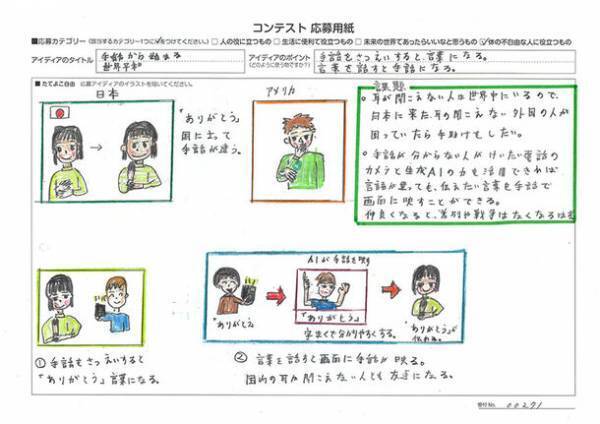 コンテスト 応募用紙
■応募カテゴリー(該当するカテゴリー1つに✓をつけてください。) □人の役に立つもの □生活に便利で役立つもの □未来の世界であったらいいなと思うもの ☑体の不自由な人に役立つもの
アイディアのタイトル
手話から始まる
世界平和
アイディアのポイント
(どのように思うのですか?)
手話をさつえいすると、言葉になる。
言葉を話すと手話になる。
■たてよこ自由 応募アイディアのイラストを描いてください。
日本
「ありがとう」
国に よって
手話が違う。
アメリカ
課題
○耳が聞こえない人は世界中にいるので、
日本に来た耳の聞こえない外国の人が
困っていたら手助けもしたい。
○手話が分からない人がけいたい電話の
カメラと生成AIの力を活用できれば
言語が違っても、伝えたい言葉を手話で
画面に映すことができる。
仲良くなると、差別や戦争はなくなるはず
①手話をさつえいすると
「ありがとう」言葉になる。
AIが手話を映す
"ありがとう"
「ありがとう」
字まくで分かりやすくする。
"ありがとう"が
伝わる。
②言葉を話すと画面に手話が映る。
国内の耳が聞こえない人とも友達になる。
受付No. 00271